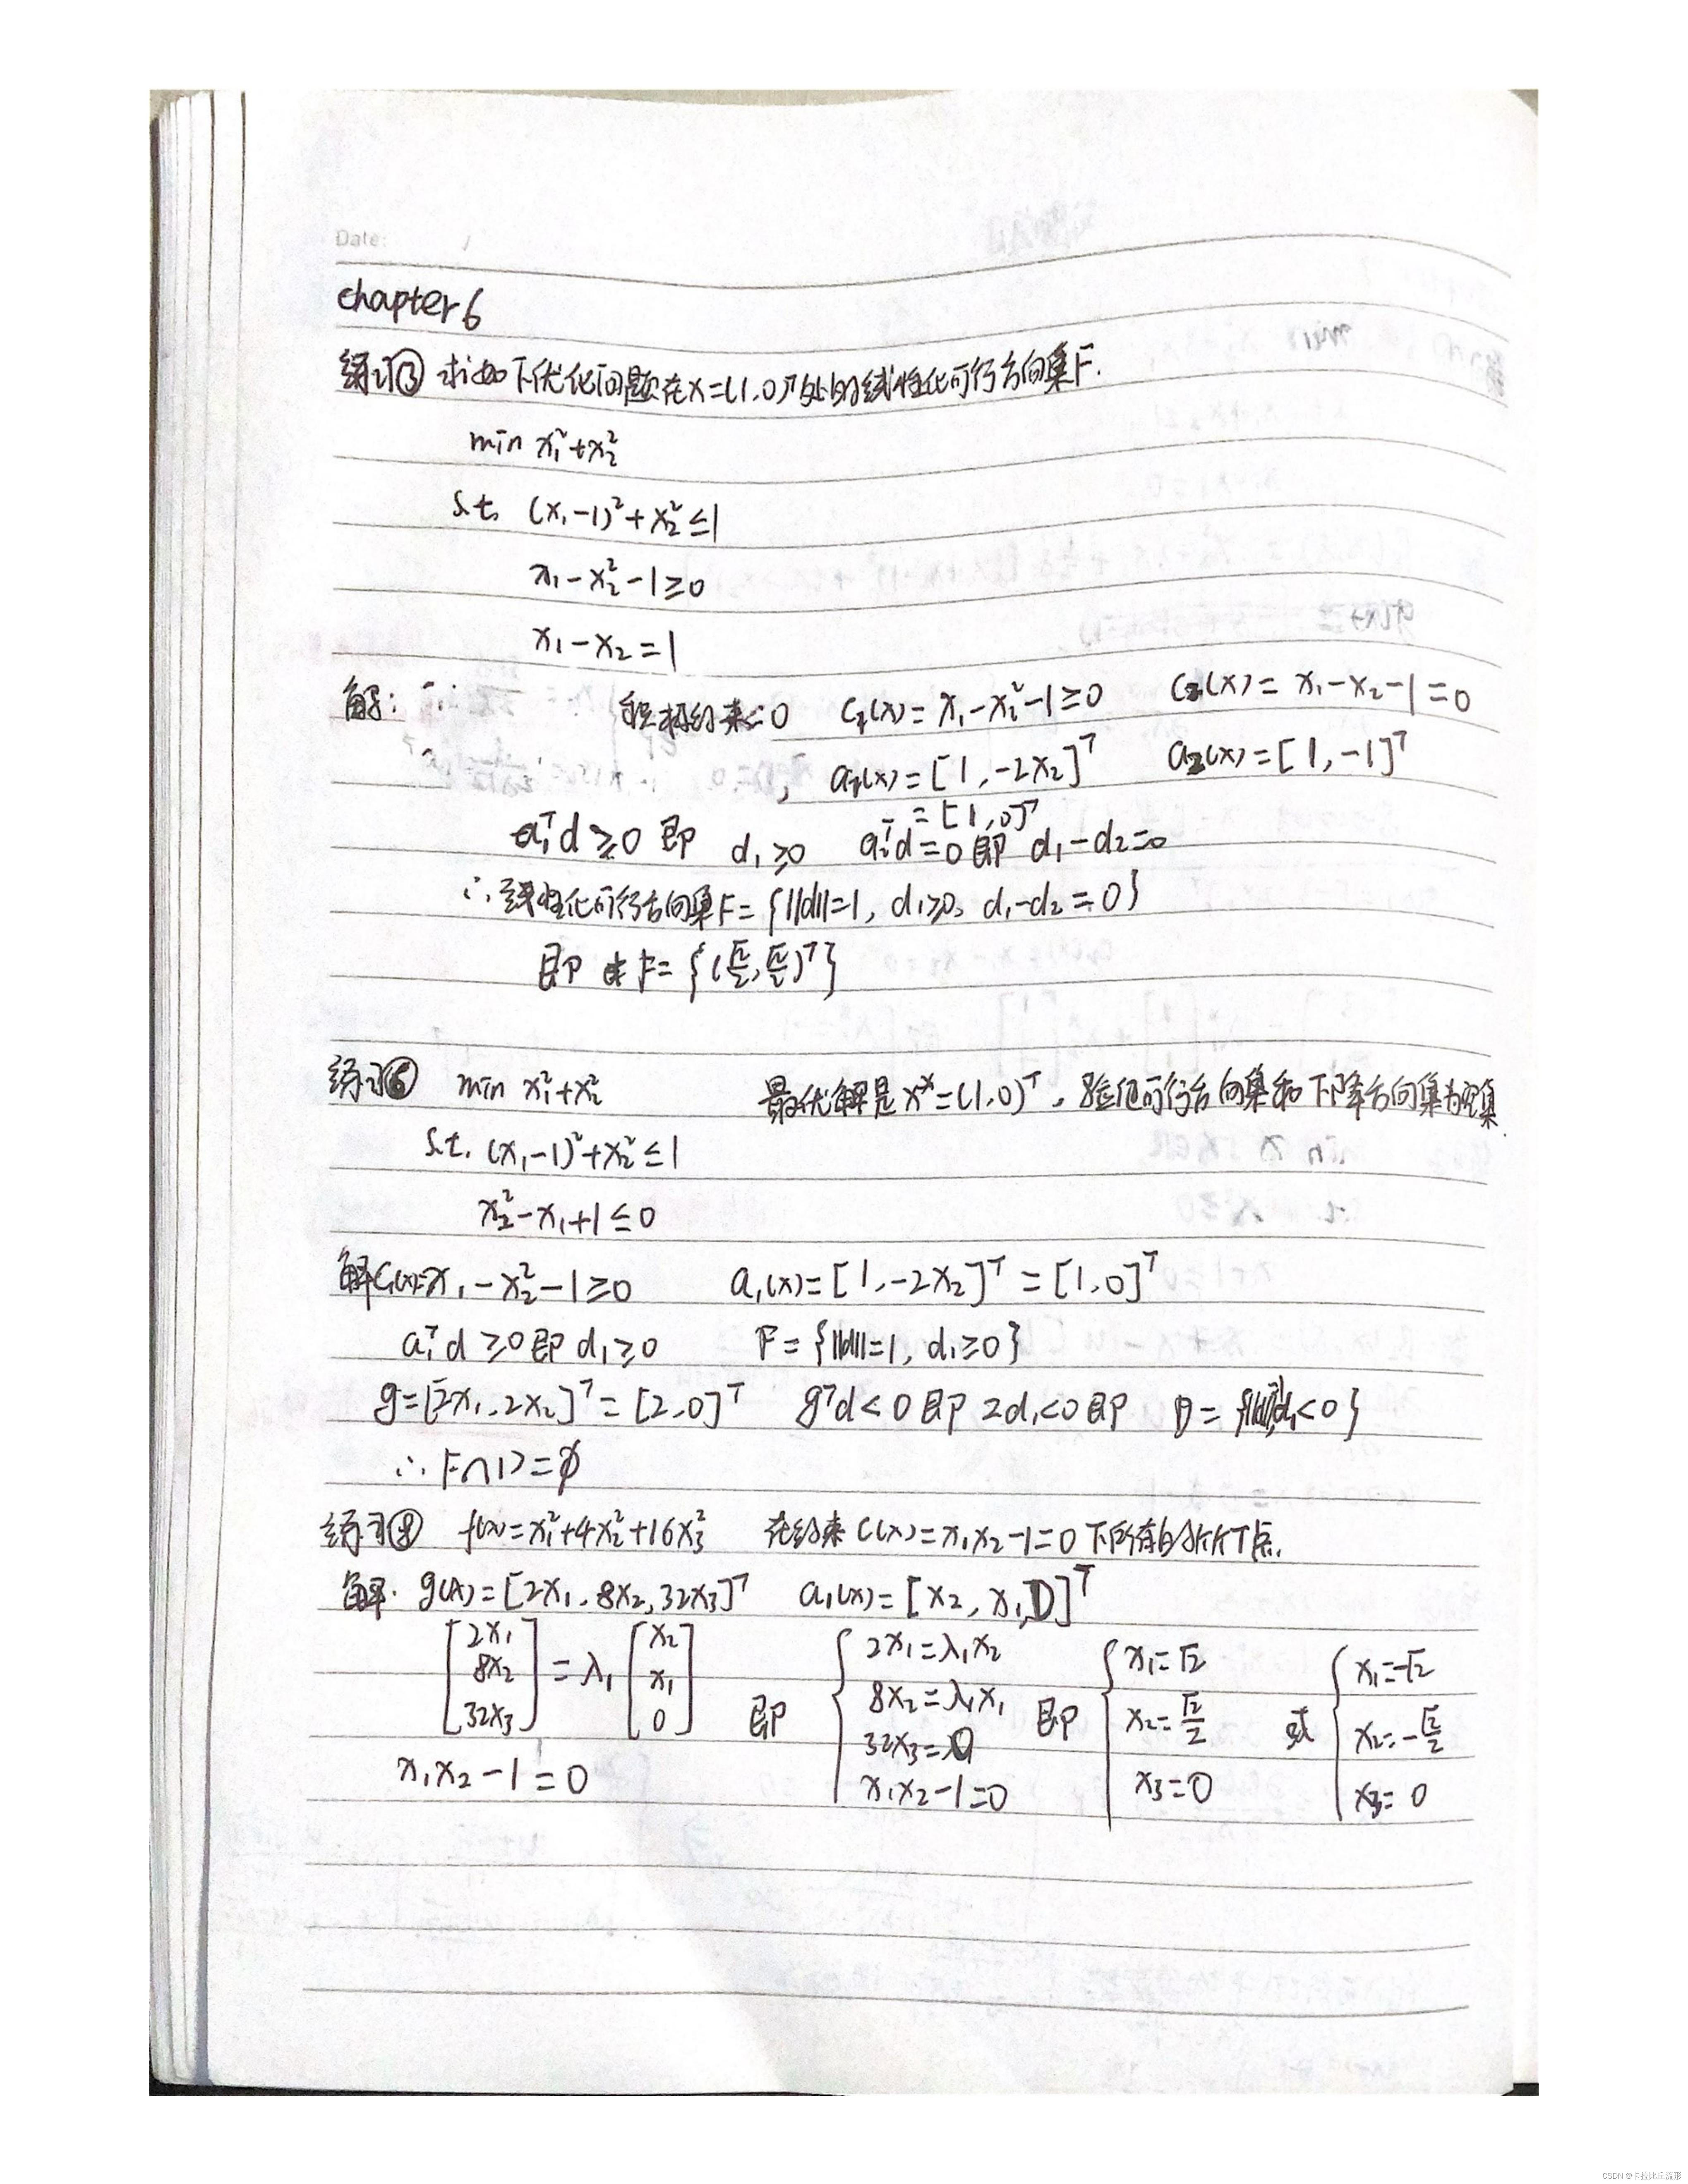 Date:
chapter 6
练习③ 求如下优化问题在x=(1,0)ᵀ处的线性化可行方向集F.
min x₁²+x₂²
s.t. (x₁-1)²+x₂²≤1
x₁-x₂²-1≥0
x₁-x₂=1
解: ∵ 积极约束: c₁(x)=x₁-x₂²-1≥0 c₂(x)=x₁-x₂-1=0
, a₁(x)=[1,-2x₂]ᵀ a₂(x)=[1,-1]ᵀ
=[1,0]ᵀ
a₁ᵀd≥0 即 d₁≥0 a₂ᵀd=0 即 d₁-d₂=0
∴线性化可行方向集F={||d||=1, d₁≥0, d₁-d₂=0}
即 F={(√2/2,√2/2)ᵀ}
练习⑥ min x₁²+x₂² 最优解是x*=(1,0)ᵀ,验证可行方向集和下降方向集为空集.
s.t. (x₁-1)²+x₂²≤1
x₂²-x₁+1≤0
解 c₁(x)=x₁-x₂²-1≥0 a₁(x)=[1,-2x₂]ᵀ=[1,0]ᵀ
a₁ᵀd≥0 即 d₁≥0 F={||d||=1, d₁≥0}
g=[2x₁,2x₂]ᵀ=[2,0]ᵀ gᵀd<0 即 2d₁<0 即 D={||d||=1,d₁<0}
∴F∩D=∅
练习⑧ f(x)=x₁²+4x₂²+16x₃² 在约束c(x)=x₁x₂-1=0下所有的KKT点.
解. g(x)=[2x₁,8x₂,32x₃]ᵀ a₁(x)=[x₂,x₁,0]ᵀ
[2x₁ 8x₂ 32x₃] = λ₁ [x₂ x₁ 0] 即 { 2x₁=λ₁x₂ 8x₂=λ₁x₁ 32x₃=0 x₁x₂-1=0 即 { x₁=√2 x₂=√2/2 x₃=0 或 { x₁=-√2 x₂=-√2/2 x₃=0
x₁x₂-1=0
CSDN @卡拉比丘流形